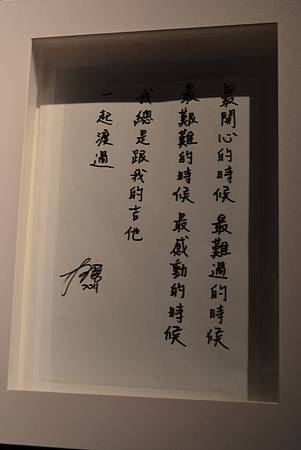 最開心的時候 最難過的時候
最艱難的時候 最感動的時候
我總是跟我的吉他
一起渡過
2011